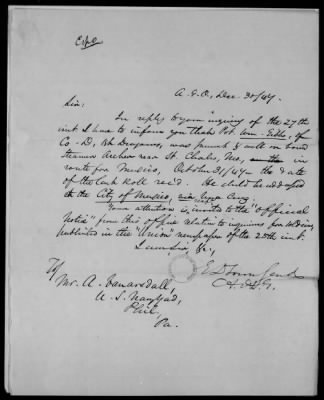 Copy
A. G. O, Dec. 30/47.
Sir:
In reply to your inquiry of the 27th
inst I have to inform you that Pvt. Wm. of
Co. D, Dragoons, was present & well on board
Steamer Archer near St. Charles, Mo, in
route for Mexico, October 31/47 the date
of the last Roll rec'd. He should be addressed
at the City of Mexico, via Vera Cruz.
Your attention is invited to the "official
Notice" from this office relative to inquiries for soldiers,
published in the "Union" newspaper of the 28th inst.
I am Sir, &c,
E D Townsend
A. A. G.
To
Mr. A. Vanarsdall,
U. S. Navy Yard,
Phil.
Pa.